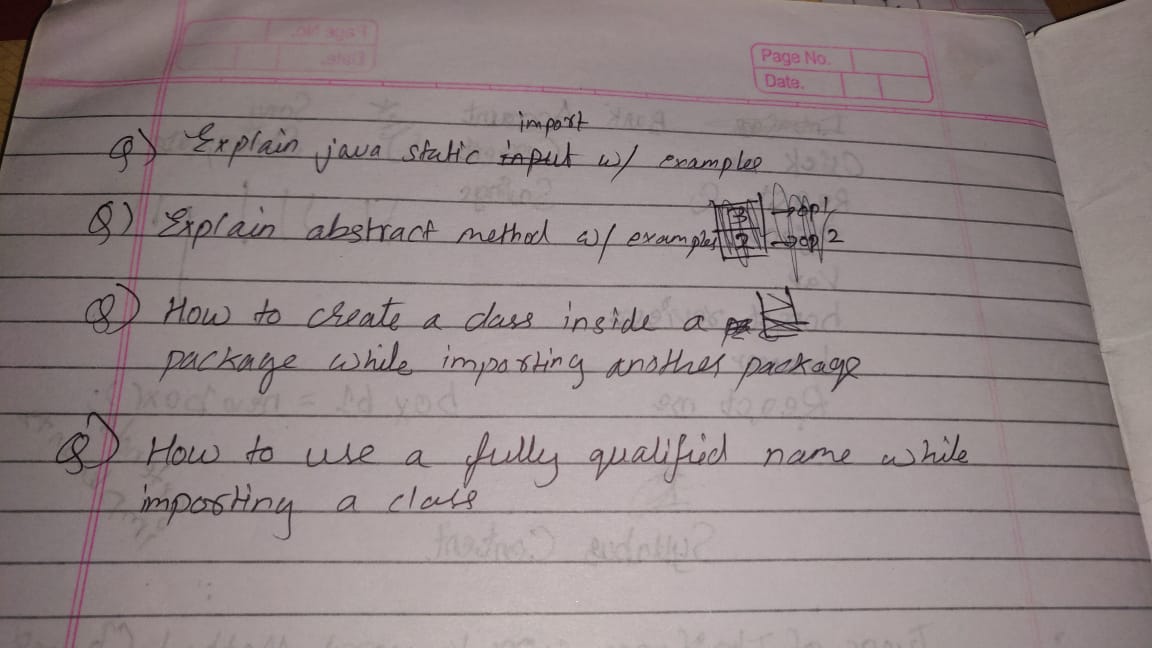 Page No.
Date.
import
Q) Explain java static input w/ examples
Q) Explain abstract method w/ examples
Q) How to create a class inside a
package while importing another package
Q) How to use a fully qualified name while
importing a class
Syllabus Content